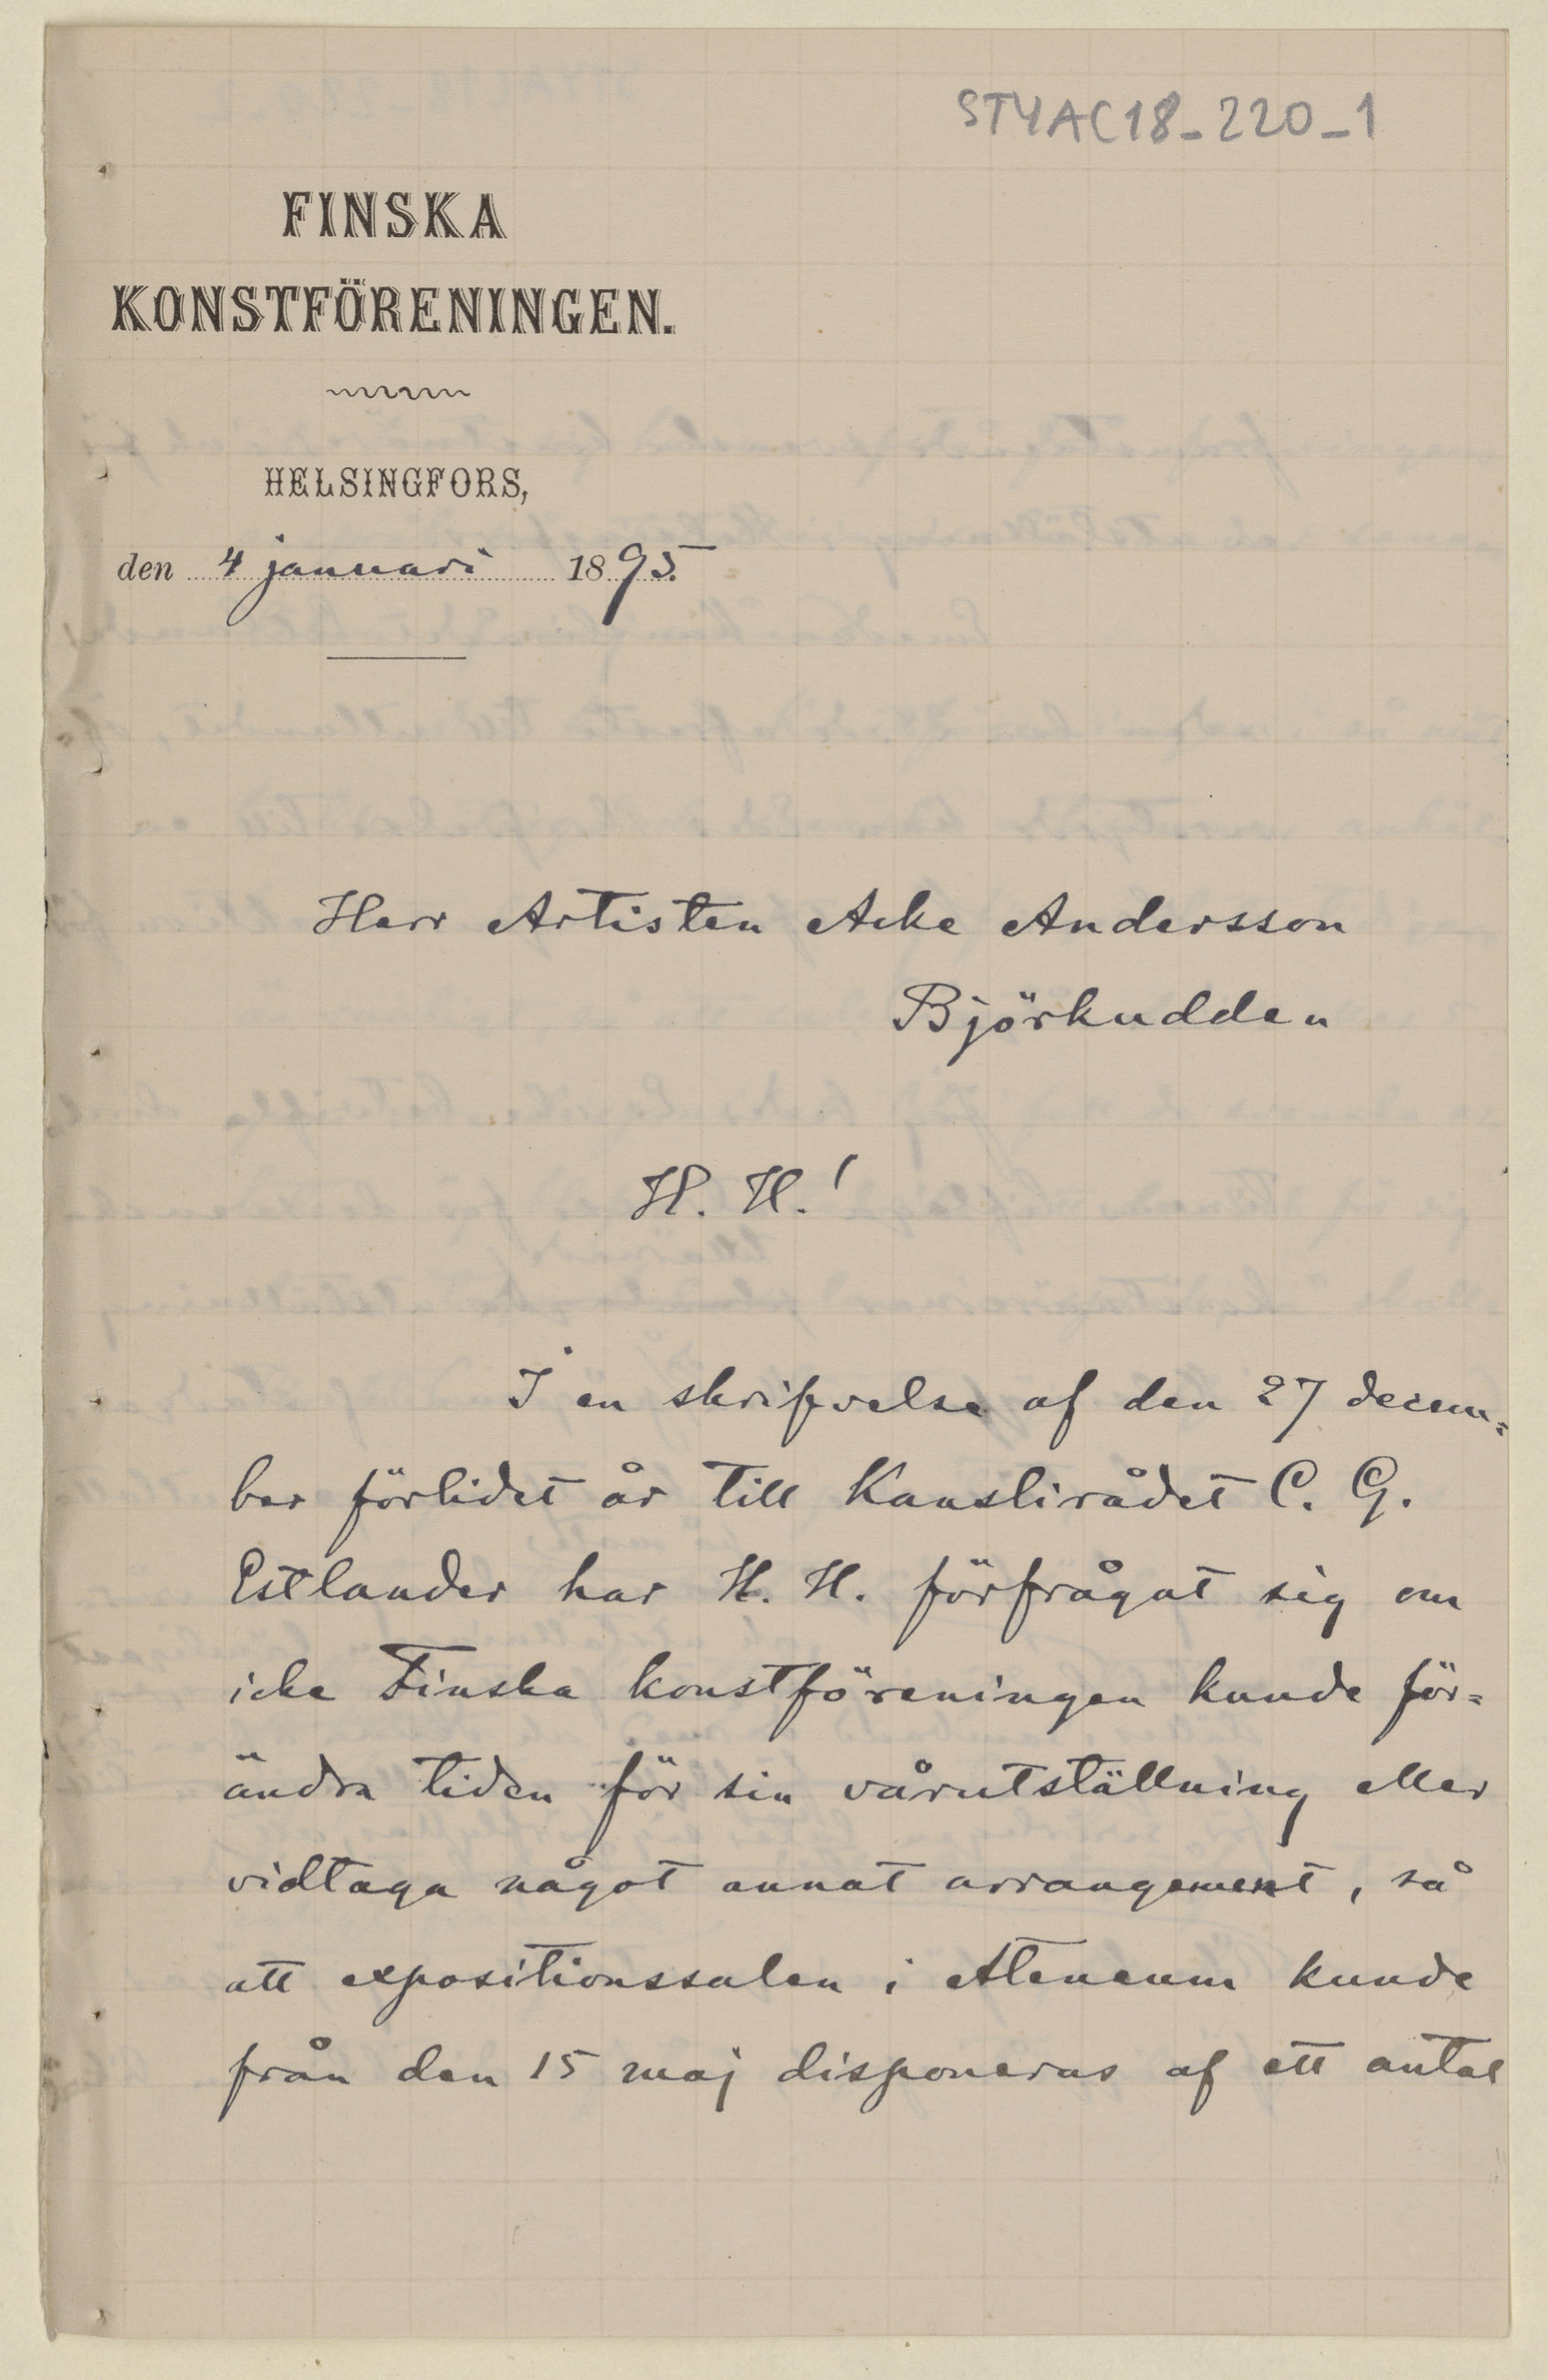 STYAC18_220_1
FINSKA
KONSTFÖRENINGEN.
HELSINGFORS,
den 4 januari 1895.
Herr Artisten Acke Andersson
Björkudden
H. H.!
I en skrifvelse af den 27 decem=
ber förlidet år till Kanslirådet C. G.
Estlander har H. H. förfrågat sig om
icke Finska konstföreningen kunde för=
ändra tiden för sin vårutställning eller
vidtaga något annat arrangement, så
att expositionssalen i Ateneum kunde
från den 15 maj disponeras af ett antal